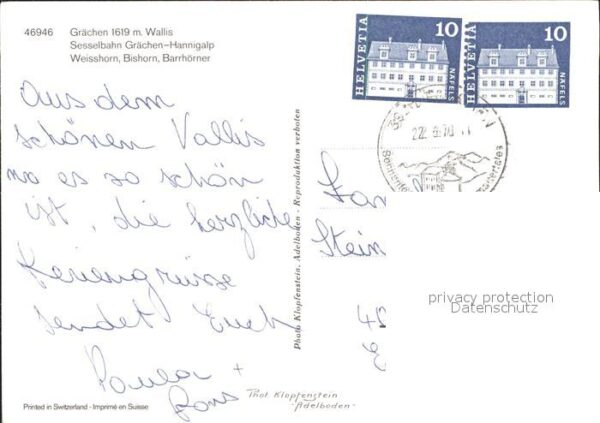 46946
Grächen 1619 m. Wallis
Sesselbahn Grächen-Hannigalp
Weisshorn, Bishorn, Barrhörner
HELVETIA 10 NÄFELS
HELVETIA 10 NÄFELS
Aus dem
schönen Vallis
wo es so schön
ist, die herzliche
Feriengrüsse
sendet Euch
Paula +
Photo Klopfenstein, Adelboden - Reproduktion verboten
22. 8.70
Fam
Stein
privacy protection
Datenschutz
Phot. Klopfenstein
-Adelboden-
Printed in Switzerland - Imprimé en Suisse